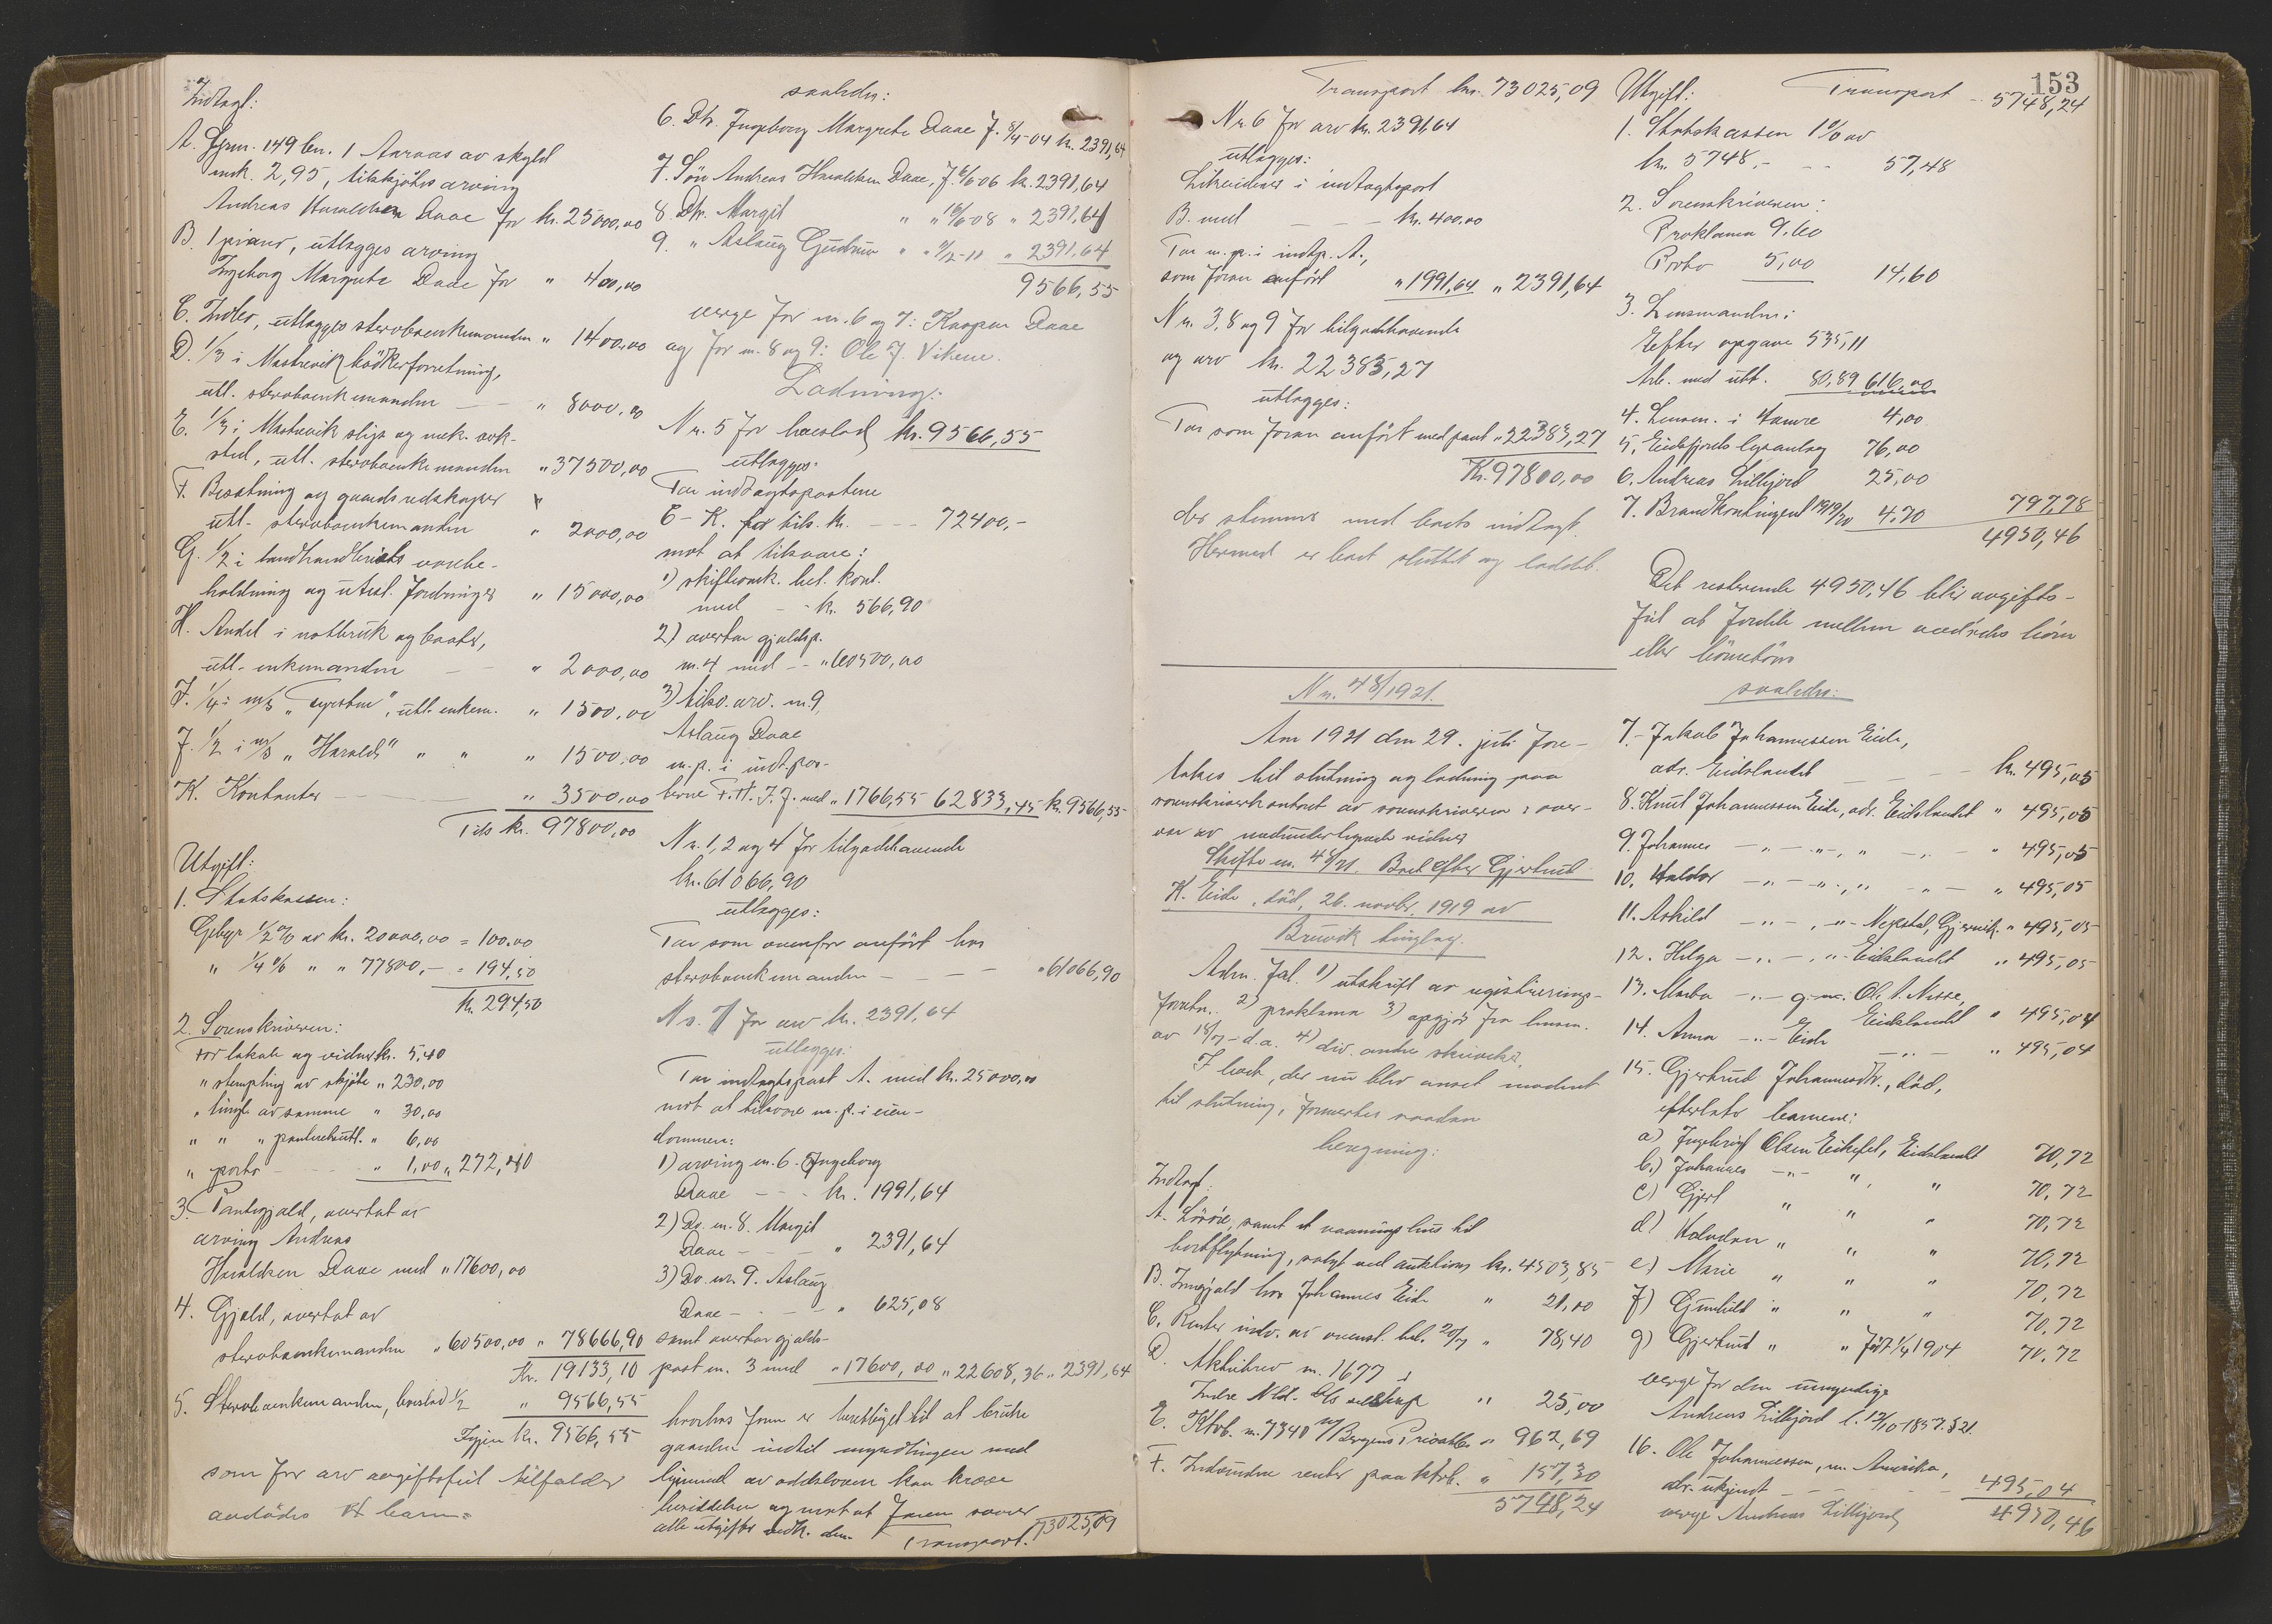 Indtægt:
A. Grnr. 149 bn. 1 Aaraas av skyld
mrk. 2,95, tilskjötes arving
Andreas Haraldsen Daae for kr. 25000,00
B. 1 piano, utlægges arving
Ingeborg Margrete Daae for " 400,00
C. Indbo, utlægges stervboenkemanden " 1400,00
D. 1/3 i Mastrevik bödkerforretning,
utl. stervboenkemanden — — " 8000,00
E. 1/3 i Mastrevik slip og mek. verk-
sted, utl. stervboenkemanden " 37500,00
F. Besætning og gaardsredskaper
utl. stervboenkemanden " 2000,00
G. 1/2 i landhandleriets varebe-
holdning og utest. fordringer " 15000,00
H. Andel i notbruk og baater,
utl. enkemanden — — " 2000,00
I. 1/4 i m/s "Tyrsten", utl. enkem. " 1500,00
J. 1/2 i m/s "Harald" " " " 1500,00
K. Kontanter — — " 3500,00
Tils kr. 97800,00
Utgift:
1. Statskassen:
Gebyr 1/2 % av kr. 20000,00 = 100.00
" 1/4 % " " 77800,- = 194,50
kr. 294,50
2. Sorenskriveren:
For lokale og vidner kr. 5,40
" stempling av skjöte " 230,00
" tingl. av samme " 30,00
" " " panteheftt. " 6,00
" porto - - - " 1,00 " 272,40
3. Pantegjæld, overtat av
arving Andreas
Haraldsen Daae med " 17600,00
4. Gjæld, overtat av
stervboenkemanden " 60500,00 " 78666,90
Kr. 19133,10
5. Stervboenkemanden, boeslod 1/2 " 9566,55
Igjen kr. 9566,55
som for arv avgiftsfrit tilfalder
avdödes 4 barn
saaledes:
6. Dtr. Ingeborg Margrete Daae f. 8/4-04 kr. 2391,64
7. Sön Andreas Haraldsen Daae, f. 6/6-06 kr. 2391,64
8. Dtr. Margit " " 16/6-08 " 2391,64
9. " Aslaug Gudrun " " 9/2-11 " 2391,64
9566,55
verge for nr. 6 og 7: Kaspar Daae
og for nr. 8 og 9: Ole J. Vikene.
Lodning:
Nr. 5 for boeslod kr. 9566,55
utlægges:
Tar indtægtspostene
C - K. for tils. kr. — — 72400,-
mot at tilsvare:
1) skifteomk. bet. kont.
med - - kr. 566,90
2) overtar gjældsp.
nr. 4 med - - " 60500,00
3) tilsv. arv. nr. 9,
Aslaug Daae
m.p. i indt.pos-
terne F. H. I. J. med " 1766,55 62833,45 kr. 9566,55
Nr. 1, 2 og 4 for tilgodehavende
kr. 61066,90
utlægges:
Tar som ovenfor anfört hos
stervboenkemanden — — — " 61066,90
Nr. 7 for arv kr. 2391,64
utlægges:
Tar indtægtspost A. med kr. 25000,00
mot at tilsvare m.p. i eien-
dommen:
1) arving nr. 6. Ingeborg
Daae - - - kr. 1991,64
2) Do. nr. 8. Margit
Daae - - - " 2391,64
3) Do. nr. 9. Aslaug
Daae - - - " 625,08
samt overtar gjælds-
post nr. 3 med " 17600,00 " 22608,36 " 2391,64
hvorhos faren er berettiget til at bruke
gaarden indtil myndlingen med
hjemmel av oddelsloven kan kræve
besiddelsen og mot at faren svarer
alle utgifter vedk. den
Transport. 73025,09
153
Transport kr. 73025,09
Nr. 6 for arv kr. 2391,64
utlægges:
Likeeiendes i indtægtspost
B. med — — kr. 400,00
Tar m.p. i indtp. A.,
som foran anfört " 1991,64 " 2391,64
Nr. 3, 8 og 9 for tilgodehavende
og arv kr. 22383,27
utlægges:
Tar som foran anfört med pant " 22383,27
Kr. 97800,00
der stemmer med boets indtægt.
Hermed er boet sluttet og loddet.
Nr. 48/1921.
Aar 1921 den 29. juli fore-
tokes til slutning og lodning paa
sorenskriverkontoret av sorenskriveren i over-
vær av nedenunderskrevne vidner
Skifte nr. 48/21. Boet efter Gjertrud
K. Eide, död, 26. novbr. 1919 av
Bruvik tinglag.
Adm. fol. 1) utskrift av registrerings-
forretn. 2) proklama 3) opgjör fra lensm.
av 18/7 - d.a. 4) div. andre skrivelser.
I boet, der nu blev anset modent
til slutning, formertes saadan
beregning:
Indtægt:
A. Lösöre, samt et vaaningshus til
bortflytning, solgt ved auktions kr. 4503,85
B. Inngjæld hos Johannes Eide " 21,00
C. Renter indv. av ovenst. bel. 20/7 " 78,40
D. Aktiebrev nr. 1677 i
Indre Nhl. D/s selskap " 25,00
E. Ktrb. nr. 7340 m/ Bergens Privatb. " 962,69
F. Indvundne renter paa ktrb. " 157,30
5748,24
Utgift: Transport - 5748,24
1. Statskassen 1 % av
kr. 5748,- - - 57,48
2. Sorenskriveren:
Proklama 9.60
Porto 5,00 14,60
3. Lensmanden:
Efter opgave 535,11
Arb. med utl. 80,89 616,00
4. Lensm. i Hamre 4,00
5. Eidsfjords lysanlæg 76,00
6. Andreas Lillejord 25,00
7. Brandkontingent 1919/20 4,70 797,78
4950,46
Det resterende 4950,46 blir avgifts-
frit at fordele mellem avdödes börn
eller börnebörn
saaledes:
7. Jakob Johannessen Eide,
adr. Eidslandet — — — kr. 495,05
8. Knut Johannessen Eide, adr. Eidslandet " 495,05
9. Johannes — " — " —, " — " — " 495,05
10. Haldor — " — " —, " — " — " 495,05
11. Askild — " —, " - Nepstad, Gjerviks. " 495,05
12. Helga — " —, " - Eidslandet " 495,05
13. Marta — " — g. m. Ole A. Nesse,
Eidslandet " 495,04
14. Anna — " — Eide — " — " 495,04
15. Gjertrud Johannesdtr., död,
efterlater barnene:
a) Ingebrigt Olsen Eikefet, Eidslandet 70,72
b.) Johannes — " — " , " 70,72
c) Gjert " " " 70,72
d) Halvdan " " " 70,72
e) Marie " " " 70,72
f) Gunhild " " " 70,72
g) Gjertrud " " Född 1/4 1904 70.72
verge for den umyndige
Andreas Lillejord l. 12/10-1857. § 21.
16. Ole Johannessen, m. Amerika,
adr. ukjendt - - - - - 495,04
verge Andreas Lillejord 4950,46